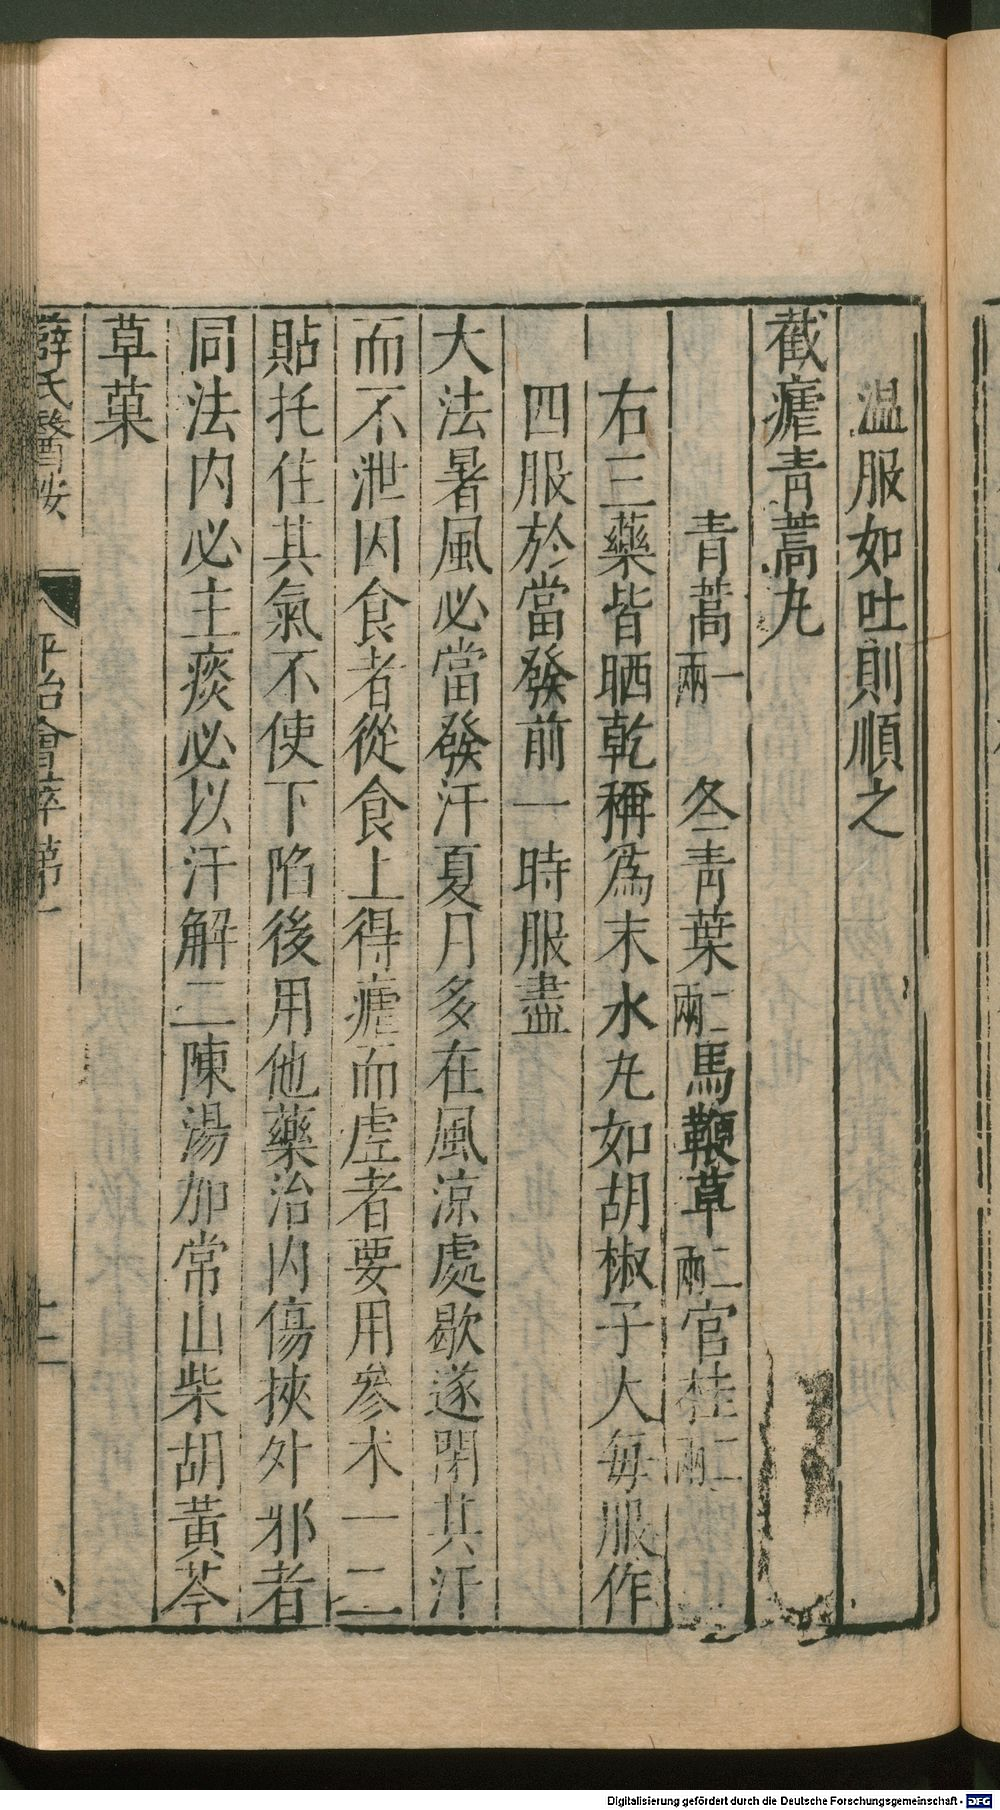 温服如吐則順之
截瘧青蒿丸
青蒿一兩 冬青葉二兩 馬鞭草二兩 官桂二兩
右三藥皆晒乾稱為末水丸如胡椒子大每服作
四服於當發前一時服盡
大法暑風必當發汗夏月多在風涼處歇遂閉其汗
而不泄因食者從食上得瘧而虛者要用參术一二
貼托住其氣不使下陷後用他藥治內傷挾外邪者
同法內必主痰必以汗解二陳湯加常山柴胡黃芩
草菓
薛氏醫按 平治會萃第一 十二
Digitalisierung gefördert durch die Deutsche Forschungsgemeinschaft - DFG